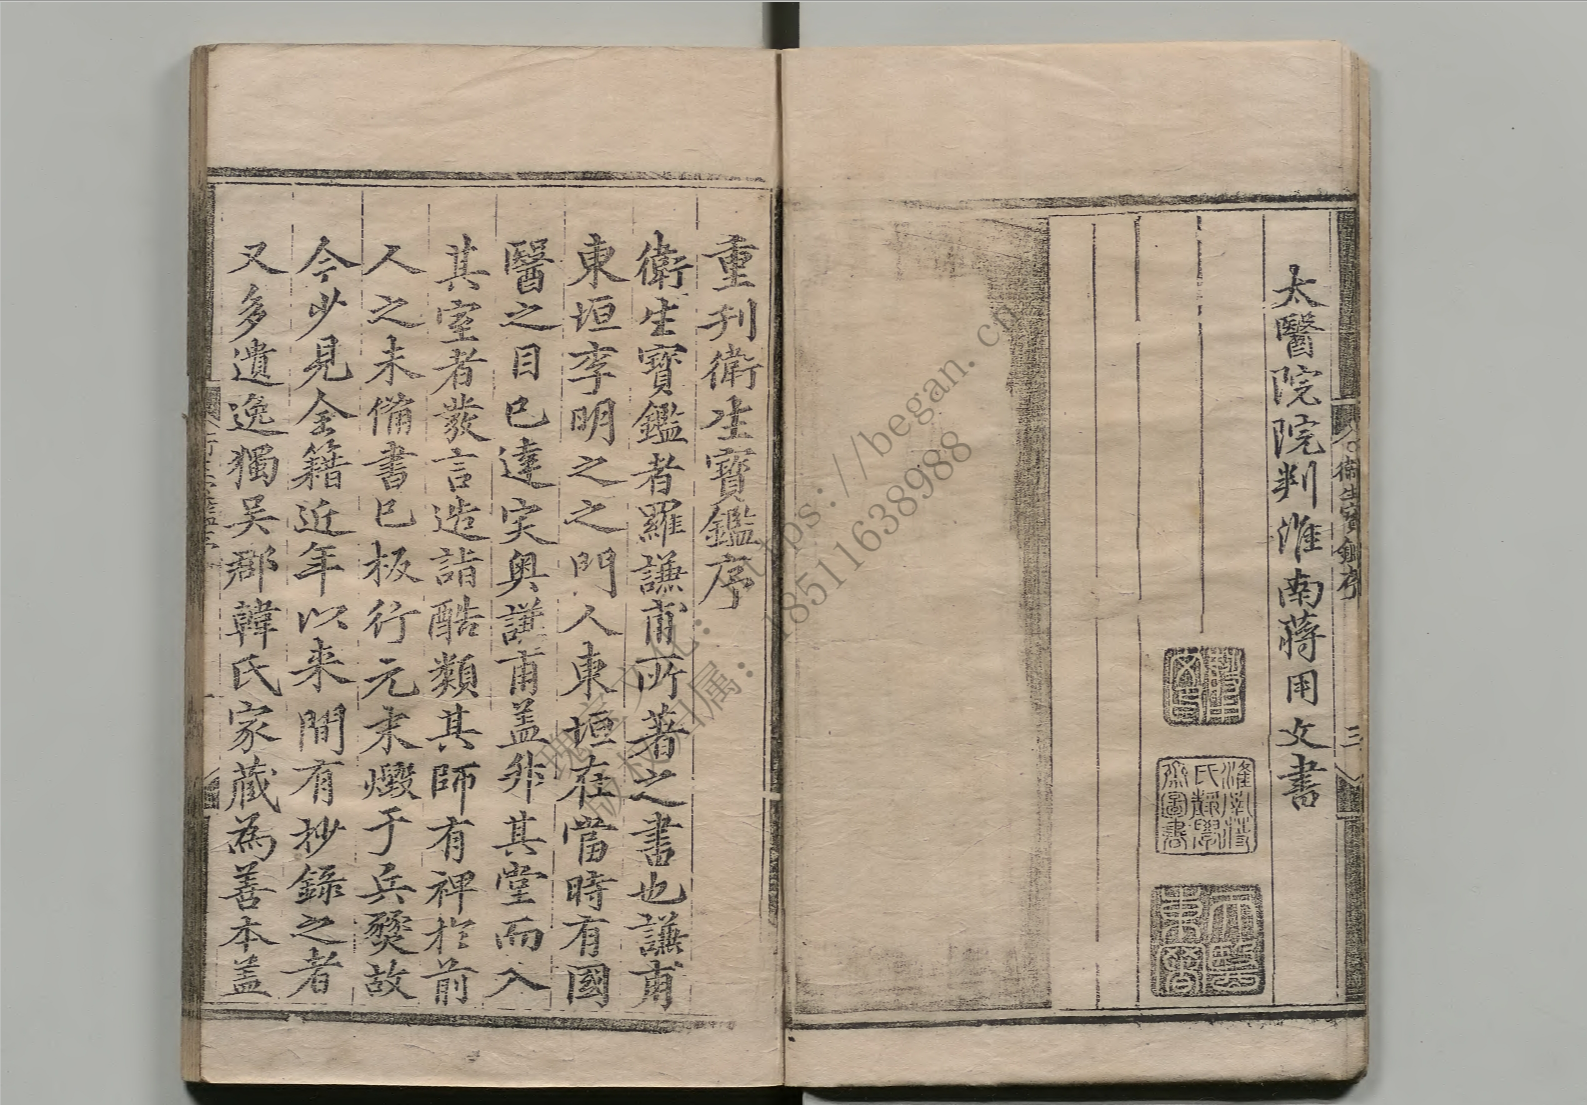 太醫院院判淮南蔣用文書
衛生寳鑑序
三
淮南蔣
氏静學
齋圖書
重刋衛生寳鑑序
衛生寳鑑者羅謙甫所著之書也謙甫
東垣李明之之門人東垣在當時有國
醫之目已達穾奥謙甫盖升其堂而入
其室者發言造詣酷類其師有裨於前
人之未備書已板行元末燬于兵燹故
今少見全籍近年以来間有抄錄之者
又多遺逸獨吴郡韓氏家藏為善本盖
https://began.cn
18511638988